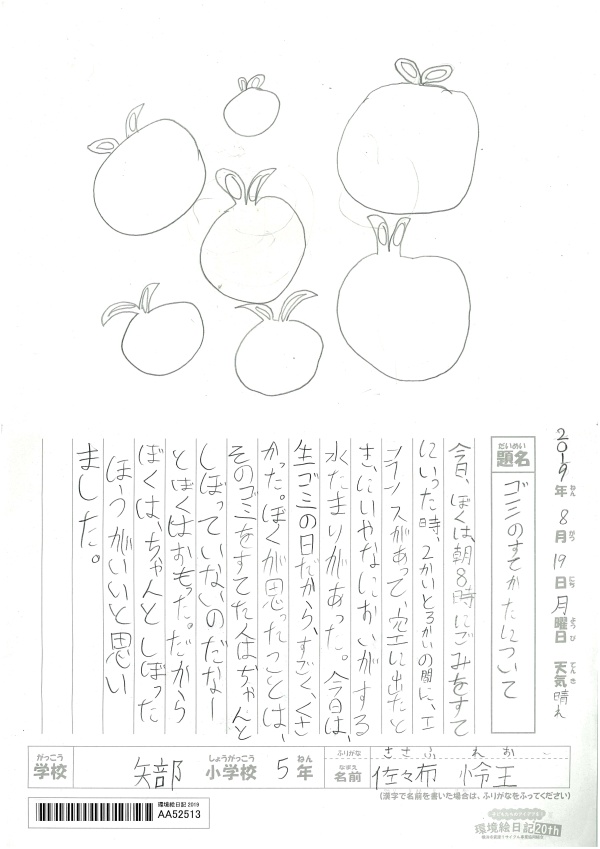 2019年ねん 8月がつ 19日にち 月曜日ようび 天気てんき 晴れ
だいめい
題名
ゴミのすてかたについて
今日、ぼくは、朝8時にごみをすて
にいった時、2かいとろかいの間に、エ
ンスがあって、空に出たと
き、にいやなにおいがする
水たまりがあった。今日は、
生ゴミの日だから、すごく、くさ
かった。ぼくが思ったことは、
そのゴミをすてた人はちゃんと
しぼっていないのだなー
とぼくはおもった。だから
ぼくは、ちゃんとしぼった
ほうがいいと思い
ました。
がっこう
学校
矢部
しょうがっこう
小学校
5
ねん
年
ふりがな
ささふ れお
なまえ
名前
佐々布 怜王
(漢字で名前を書いた場合は、ふりがなをふってください)
環境絵日記 2019
AA52513
環境絵日記20th